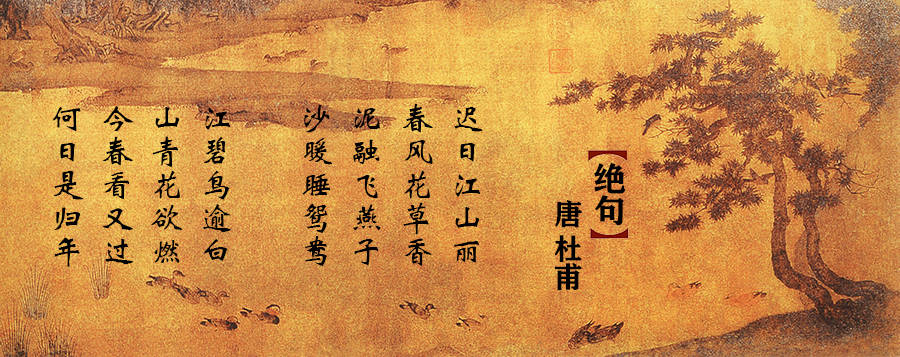 【绝句】
唐 杜甫
迟日江山丽
春风花草香
泥融飞燕子
沙暖睡鸳鸯
江碧鸟逾白
山青花欲燃
今春看又过
何日是归年